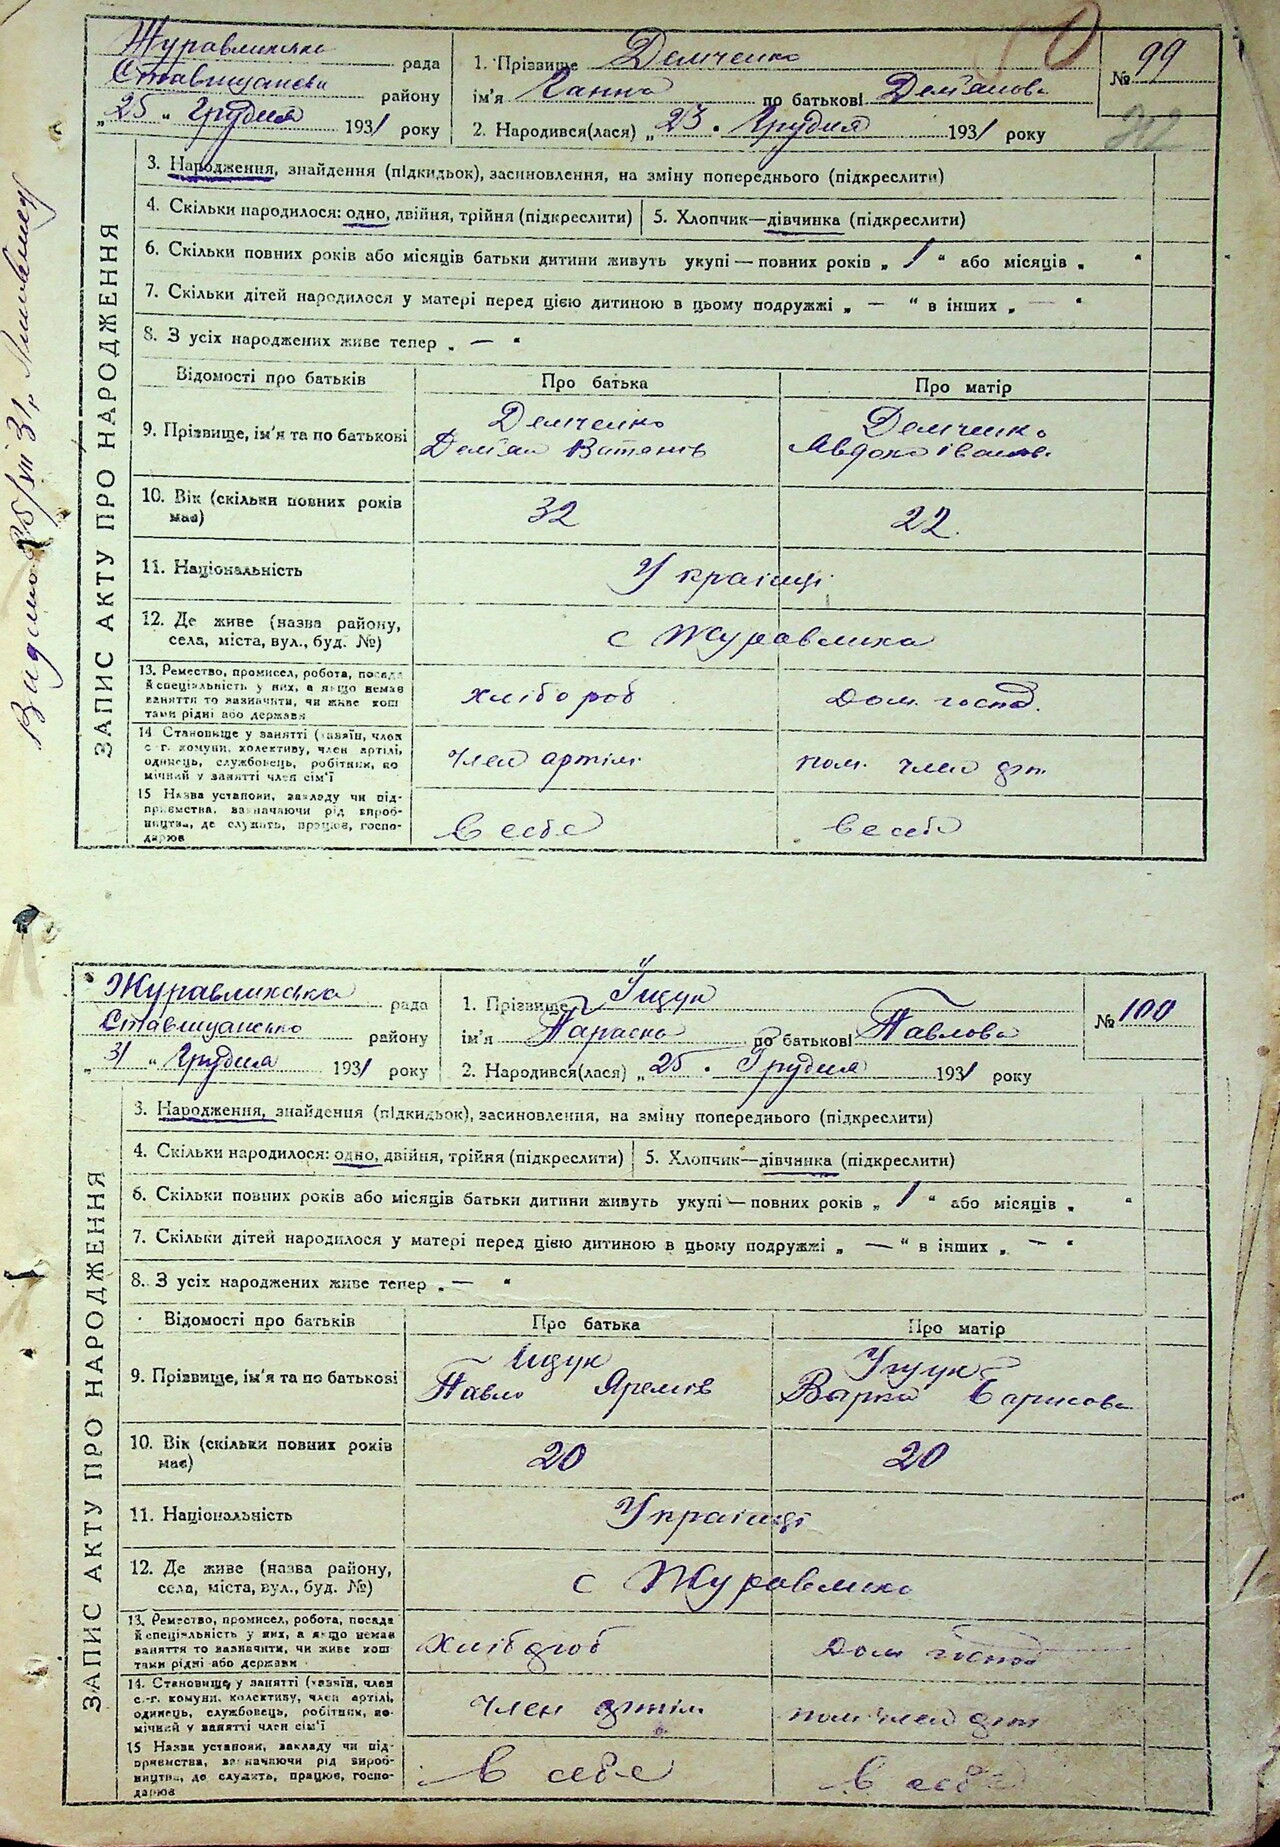 Журавлинська рада
Ставищансько району
„25“ Грудня 1931 року
1. Прізвище Демченко
ім'я Ганна по батькові Дем'янова
2. Народився(лася) „23“ Грудня 1931 року
№ 99
ЗАПИС АКТУ ПРО НАРОДЖЕННЯ
3. Народження, знайдення (підкидьок), засиновлення, на зміну попереднього (підкреслити)
4. Скільки народилося: одно, двійня, трійня (підкреслити)
5. Хлопчик—дівчинка (підкреслити)
6. Скільки повних років або місяців батьки дитини живуть укупі—повних років „1“ або місяців „ “
7. Скільки дітей народилося у матері перед цією дитиною в цьому подружжі „—“ в інших „—“
8. З усіх народжених живе тепер „—“
Відомості про батьків Про батька Про матір
9. Прізвище, ім'я та по батькові
Демченко
Дем'ян
Демченко
Авдокя Іванов.
10. Вік (скільки повних років
має)
32 22.
11. Національність Українці
12. Де живе (назва району,
села, міста, вул., буд. №)
с Журавлиха
13. Ремество, промисел, робота, посада
й спеціяльність у них, а якщо немає
заняття то зазначити, чи живе кош
тами рідні або держави
хлібороб дом. господ.
14 Становище у занятті (хазяїн, член
с.-г. комуни, колективу, член артілі,
одинець, службовець, робітник, по
мічний у занятті член сім'ї
член артілі пом. член арт.
15 Назва установи, закладу чи під-
приємства, зазначаючи рід вироб-
ництва, де служить, працює, госпо-
дарює
в себе в себе
Видано 28/VIII 31р
Журавлинська рада
Ставищансько району
„31“ Грудня 1931 року
1. Прізвище Іщук
ім'я Параска по батькові Павлова
2. Народився(лася) „25“ Грудня 1931 року
№ 100
ЗАПИС АКТУ ПРО НАРОДЖЕННЯ
3. Народження, знайдення (підкидьок), засиновлення, на зміну попереднього (підкреслити)
4. Скільки народилося: одно, двійня, трійня (підкреслити)
5. Хлопчик—дівчинка (підкреслити)
6. Скільки повних років або місяців батьки дитини живуть укупі—повних років „1“ або місяців „ “
7. Скільки дітей народилося у матері перед цією дитиною в цьому подружжі „—“ в інших „—“
8. З усіх народжених живе тепер „—“
Відомості про батьків Про батька Про матір
9. Прізвище, ім'я та по батькові
Іщук
Павло Яремів
Іщук
Варка Барисова
10. Вік (скільки повних років
має)
20 20
11. Національність Українці
12. Де живе (назва району,
села, міста, вул., буд. №)
с Журавлиха
13. Ремество, промисел, робота, посада
й спеціяльність у них, а якщо немає
заняття то зазначити, чи живе кош
тами рідні або держави
хлібороб дом господ
14. Становище у занятті (хазяїн, член
с.-г. комуни, колективу, член артілі,
одинець, службовець, робітник, по-
мічний у занятті член сім'ї
член артілі пом член арт
15 Назва установи, закладу чи під-
приємства, зазначаючи рід вироб-
ництва, де служить, працює, госпо-
дарює
в себе в себе